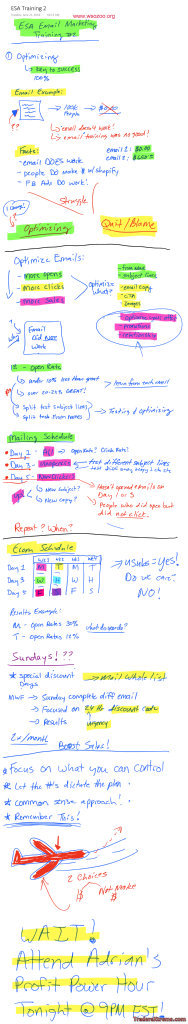 ESA Training 2
www.wsozoo.org
ESA Email Marketing
Training #2
① Optimizing
↳ key to success
100%
Email Example:
→ 100k People → $0.00
??
↳ email doesn't work!
↳ email training was no good!
Facts:
- email DOES work
- people DO make $ w/ shopify
- FB Ads DO work!
email 1: $0.00
email 2:
Struggle
Optimizing
Quit/Blame
Optimize Emails:
- More opens
- More clicks
- More Sales
Optimize what?
- from name
- subject line
- email copy
- CTA
- Images
- promotions
- relationship
Why
Email
Did Not
Work
1st - Open Rate
↳ under 10% less than great
↳ over 20-25% GREAT!
→ learn from each email
↳ Split test subject lines
↳ Split test from names
→ Testing & optimizing
Mailing Schedule
Day 1 - All → open Rate? Click Rate?
Day 3 - Unopened
← test different subject lines
Day 5 - Non clickers
↳ New Subject?
↳ New copy?
Hasn't opened emails on
Day 1 or 3
People who did open but
did not click.
Repeat? When?
Exam Schedule
WK1 WK2 WK3 WK4
Day 1 M T M T
Day 3 W H W H
Day 5 F S F S
→ unsubs = YES!
Do we care?
NO!
Results Example:
M - open Rates 30%
T - open Rates 10%
what do we do?
Sundays!??
* special discount
Days
→ Mail whole list
MWF → Sunday complete diff email
→ Focused on 24 hr discount code
→ Results
urgency
2x/month
Boost Sales!
* Focus on what you can control
* Let the #'s dictate the plan
* common sense approach!
* Remember This!
2 Choices
$
Not Make $
WAIT!
Attend Adrian's
Profit Power Hour
Tonight @ 9PM EST!
TradersXtreme.com